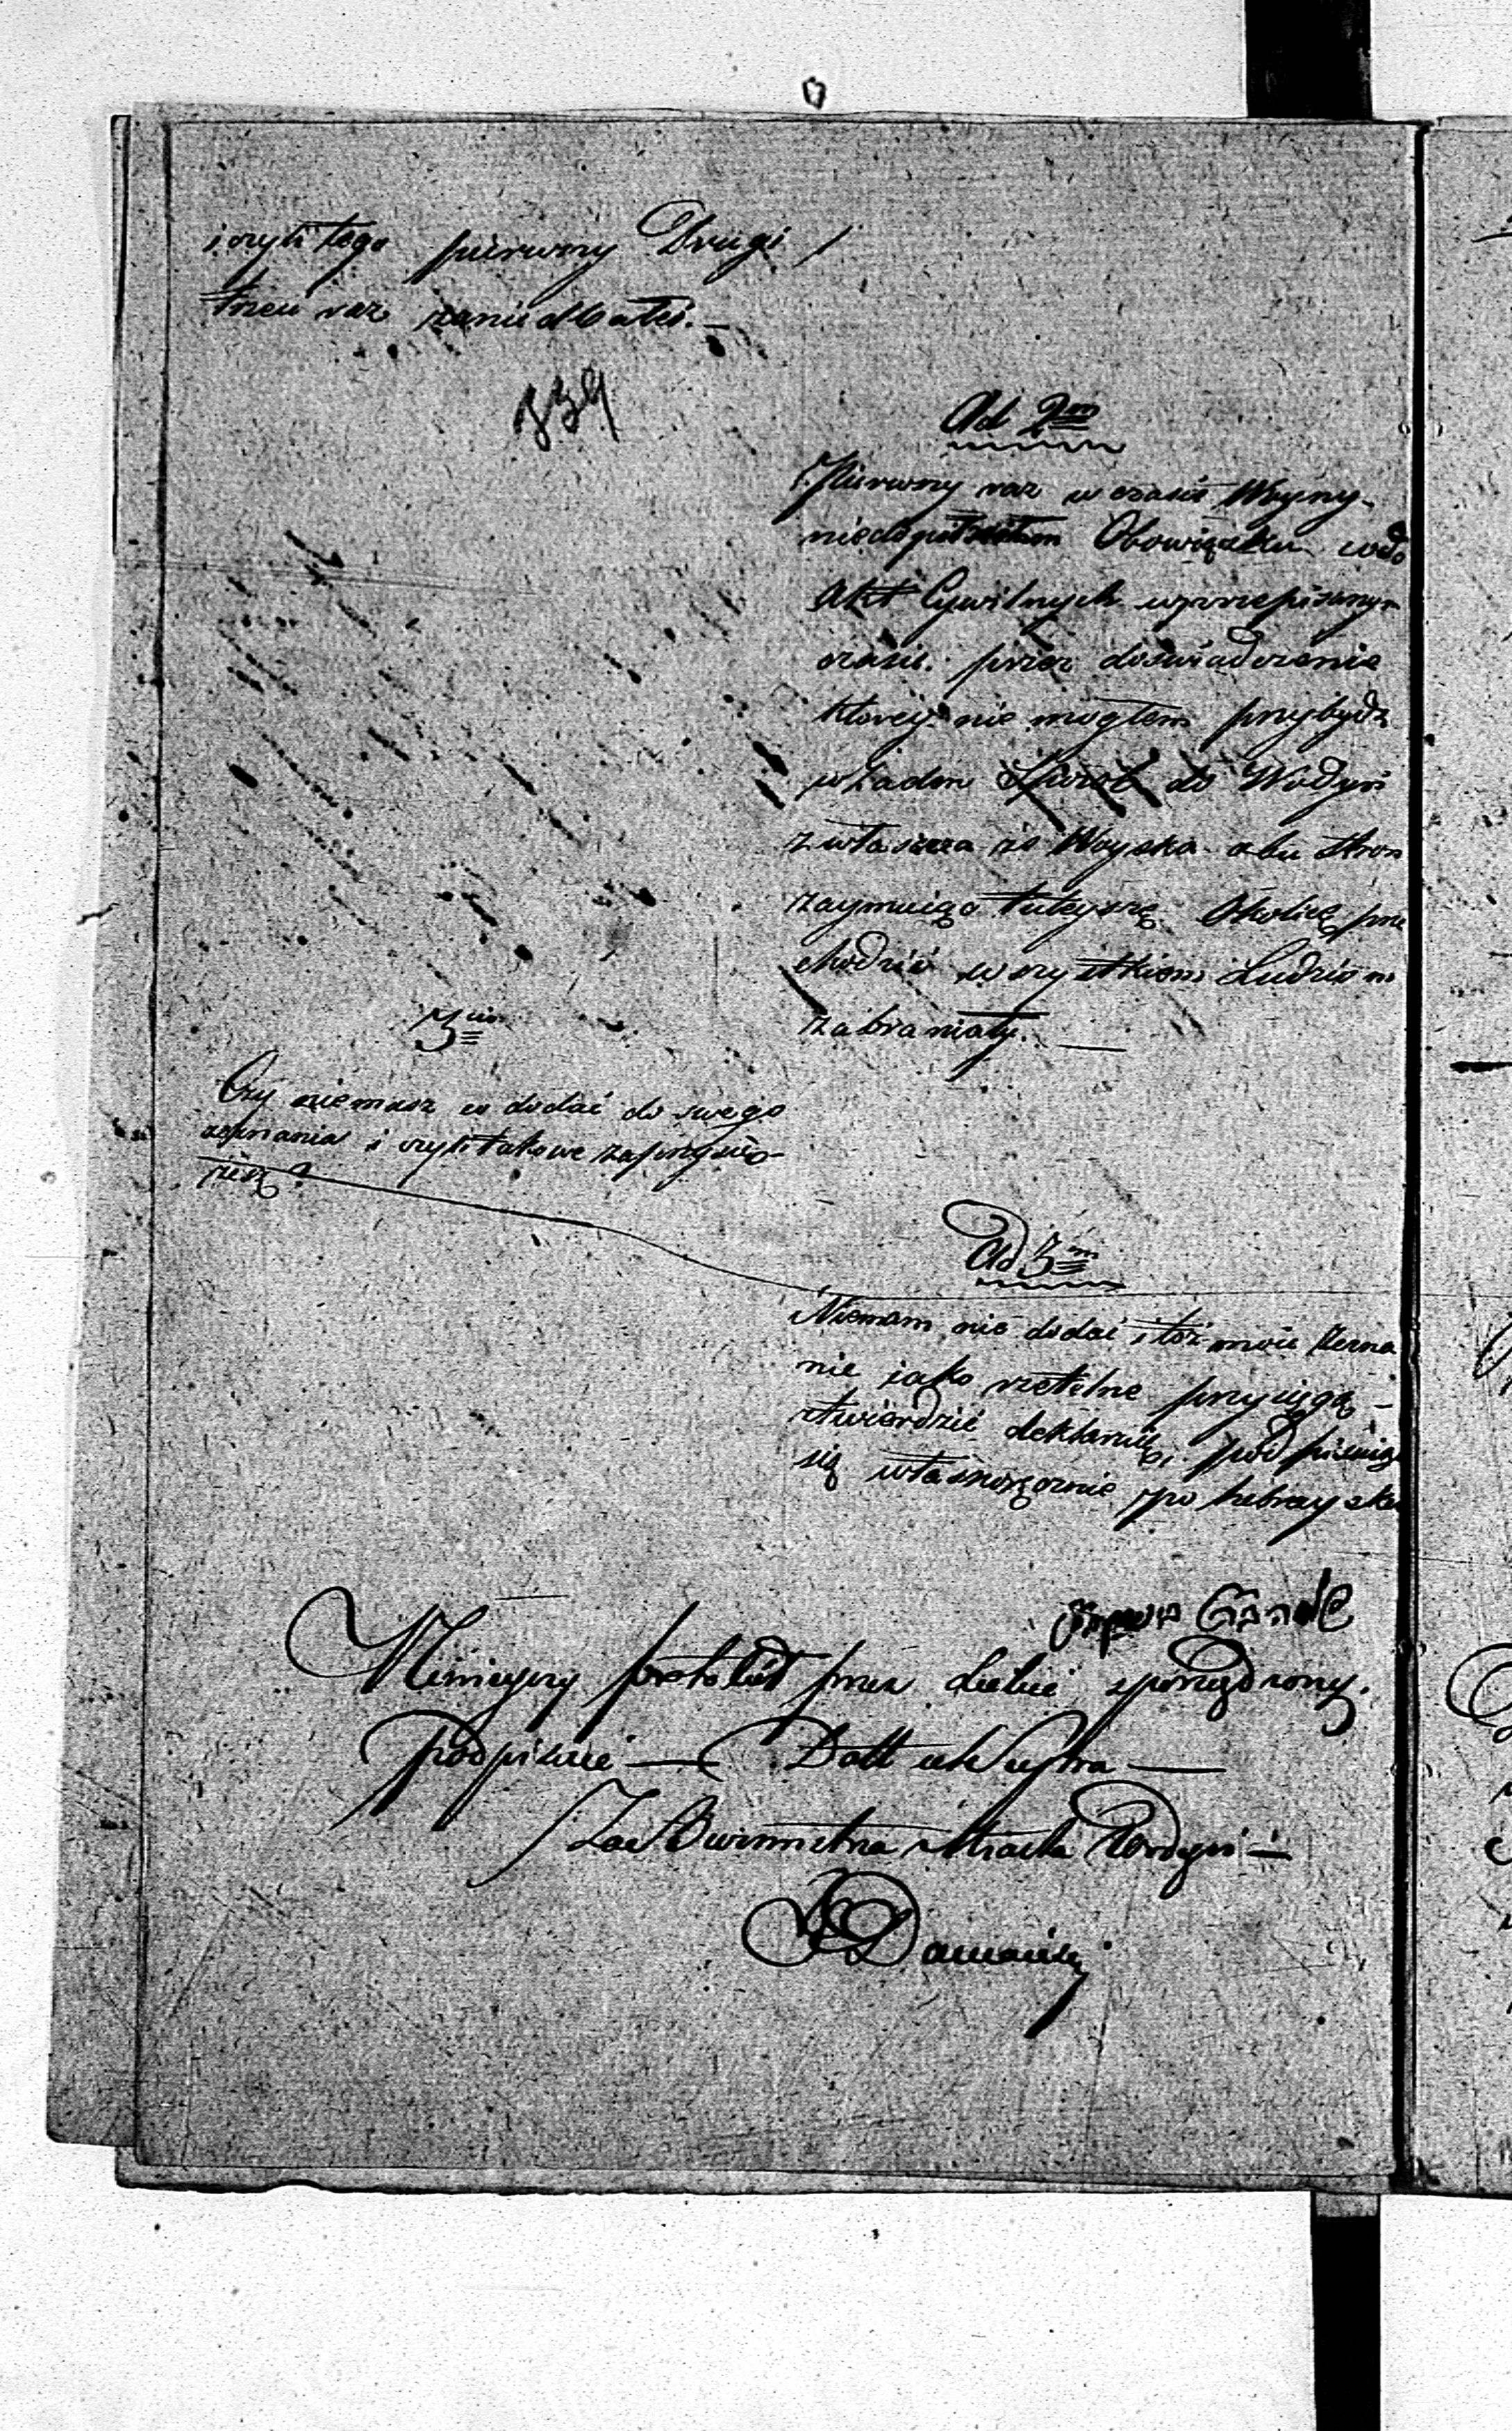 i czyli tego pierwszy Drugi /
trzeci raz zaniedbałeś. —
339
Ad 2m
Pierwszy raz w czasie Woyny
niedopełniłem Obowiązku
Akt Cywilnych w przepisanym
czasie. przez doświadczenie
którey nie mogłem przybydz
w żaden do Wodyń
zwłaszcza że Woyska obu stron
zaymuiąc tuteyszą Okolicę prze
chodzić wszystkiem Ludziom
zabraniały. —
3m
Czy niemasz co dodać do swego
zeznania i czyli takowe zaprzysię-
żesz?
Ad 3m
Niemam nic dodać i też moie Zezna
nie iako rzetelne przysięgą -
stwierdzić deklaruię i podpisuię
się własnoręcznie po hebraysku
Ninieyszy protokuł przez siebie sporządzony.
podpisuie — Datt ut Supra —
Zas Burmistrza Miasta Wodyń —